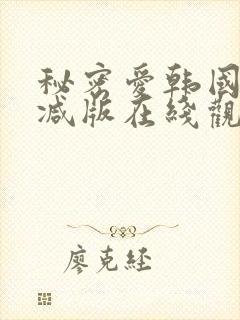 秘密爱韩国
减版在线觀
廖克经